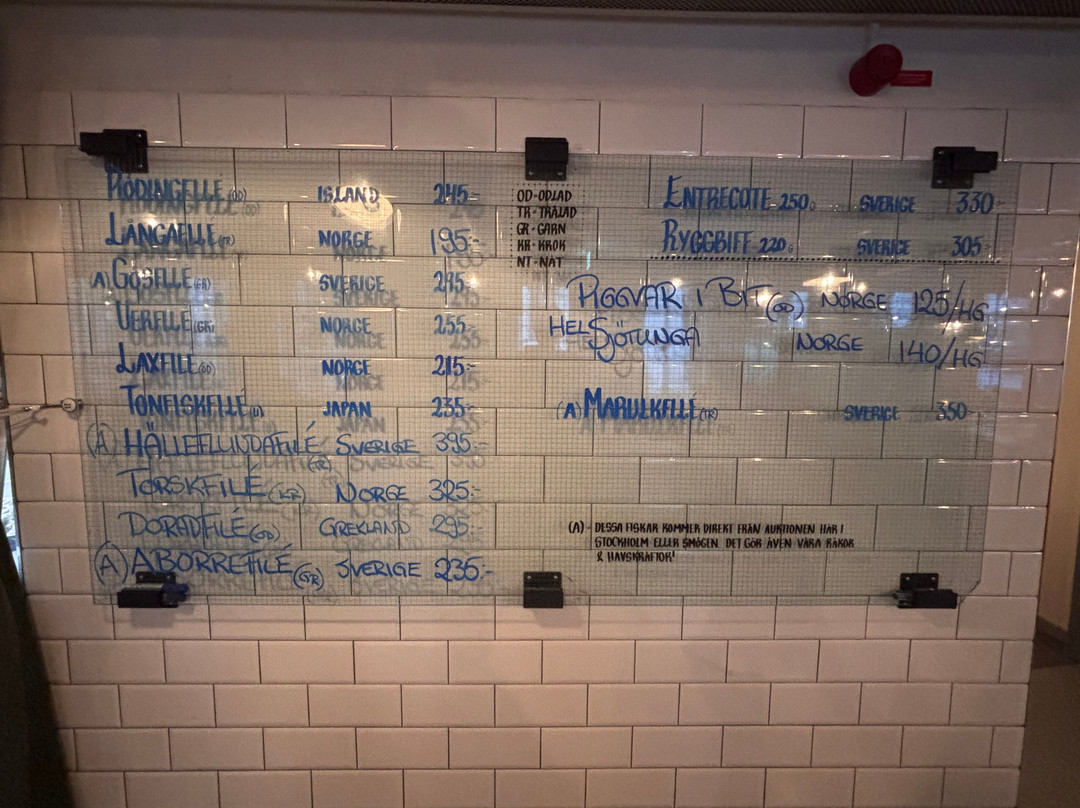 RÖDINGFILÉ (OD) ISLAND 245:-
LÅNGAFILÉ (TR) NORGE 195:-
(A) GÖSFILÉ (GR) SVERIGE 245:-
UERFILÉ (GR) NORGE 255:-
LAXFILÉ (OD) NORGE 215:-
TONFISKFILÉ JAPAN 235:-
(A) HÄLLEFLUNDAFILÉ (GR) SVERIGE 395:-
TORSKFILÉ (KR) NORGE 325:-
DORADFILÉ (OD) GREKLAND 295:-
(A) ABORREFILÉ (GR) SVERIGE 235:-
OD - ODLAD
TR - TRÅLAD
GR - GARN
KR - KROK
NT - NÄT
ENTRECOTE 250G SVERIGE 330:-
RYGGBIFF 220G SVERIGE 305:-
PIGGVAR I BIT (OD) NORGE 125/HG
HEL SJÖTUNGA NORGE 140/HG
(A) MARULKFILÉ (TR) SVERIGE 350:-
(A) - DESSA FISKAR KOMMER DIREKT FRÅN AUKTIONEN HÄR I
STOCKHOLM ELLER SMÖGEN. DET GÖR ÄVEN VÅRA RÄKOR
& HAVSKRÄFTOR!